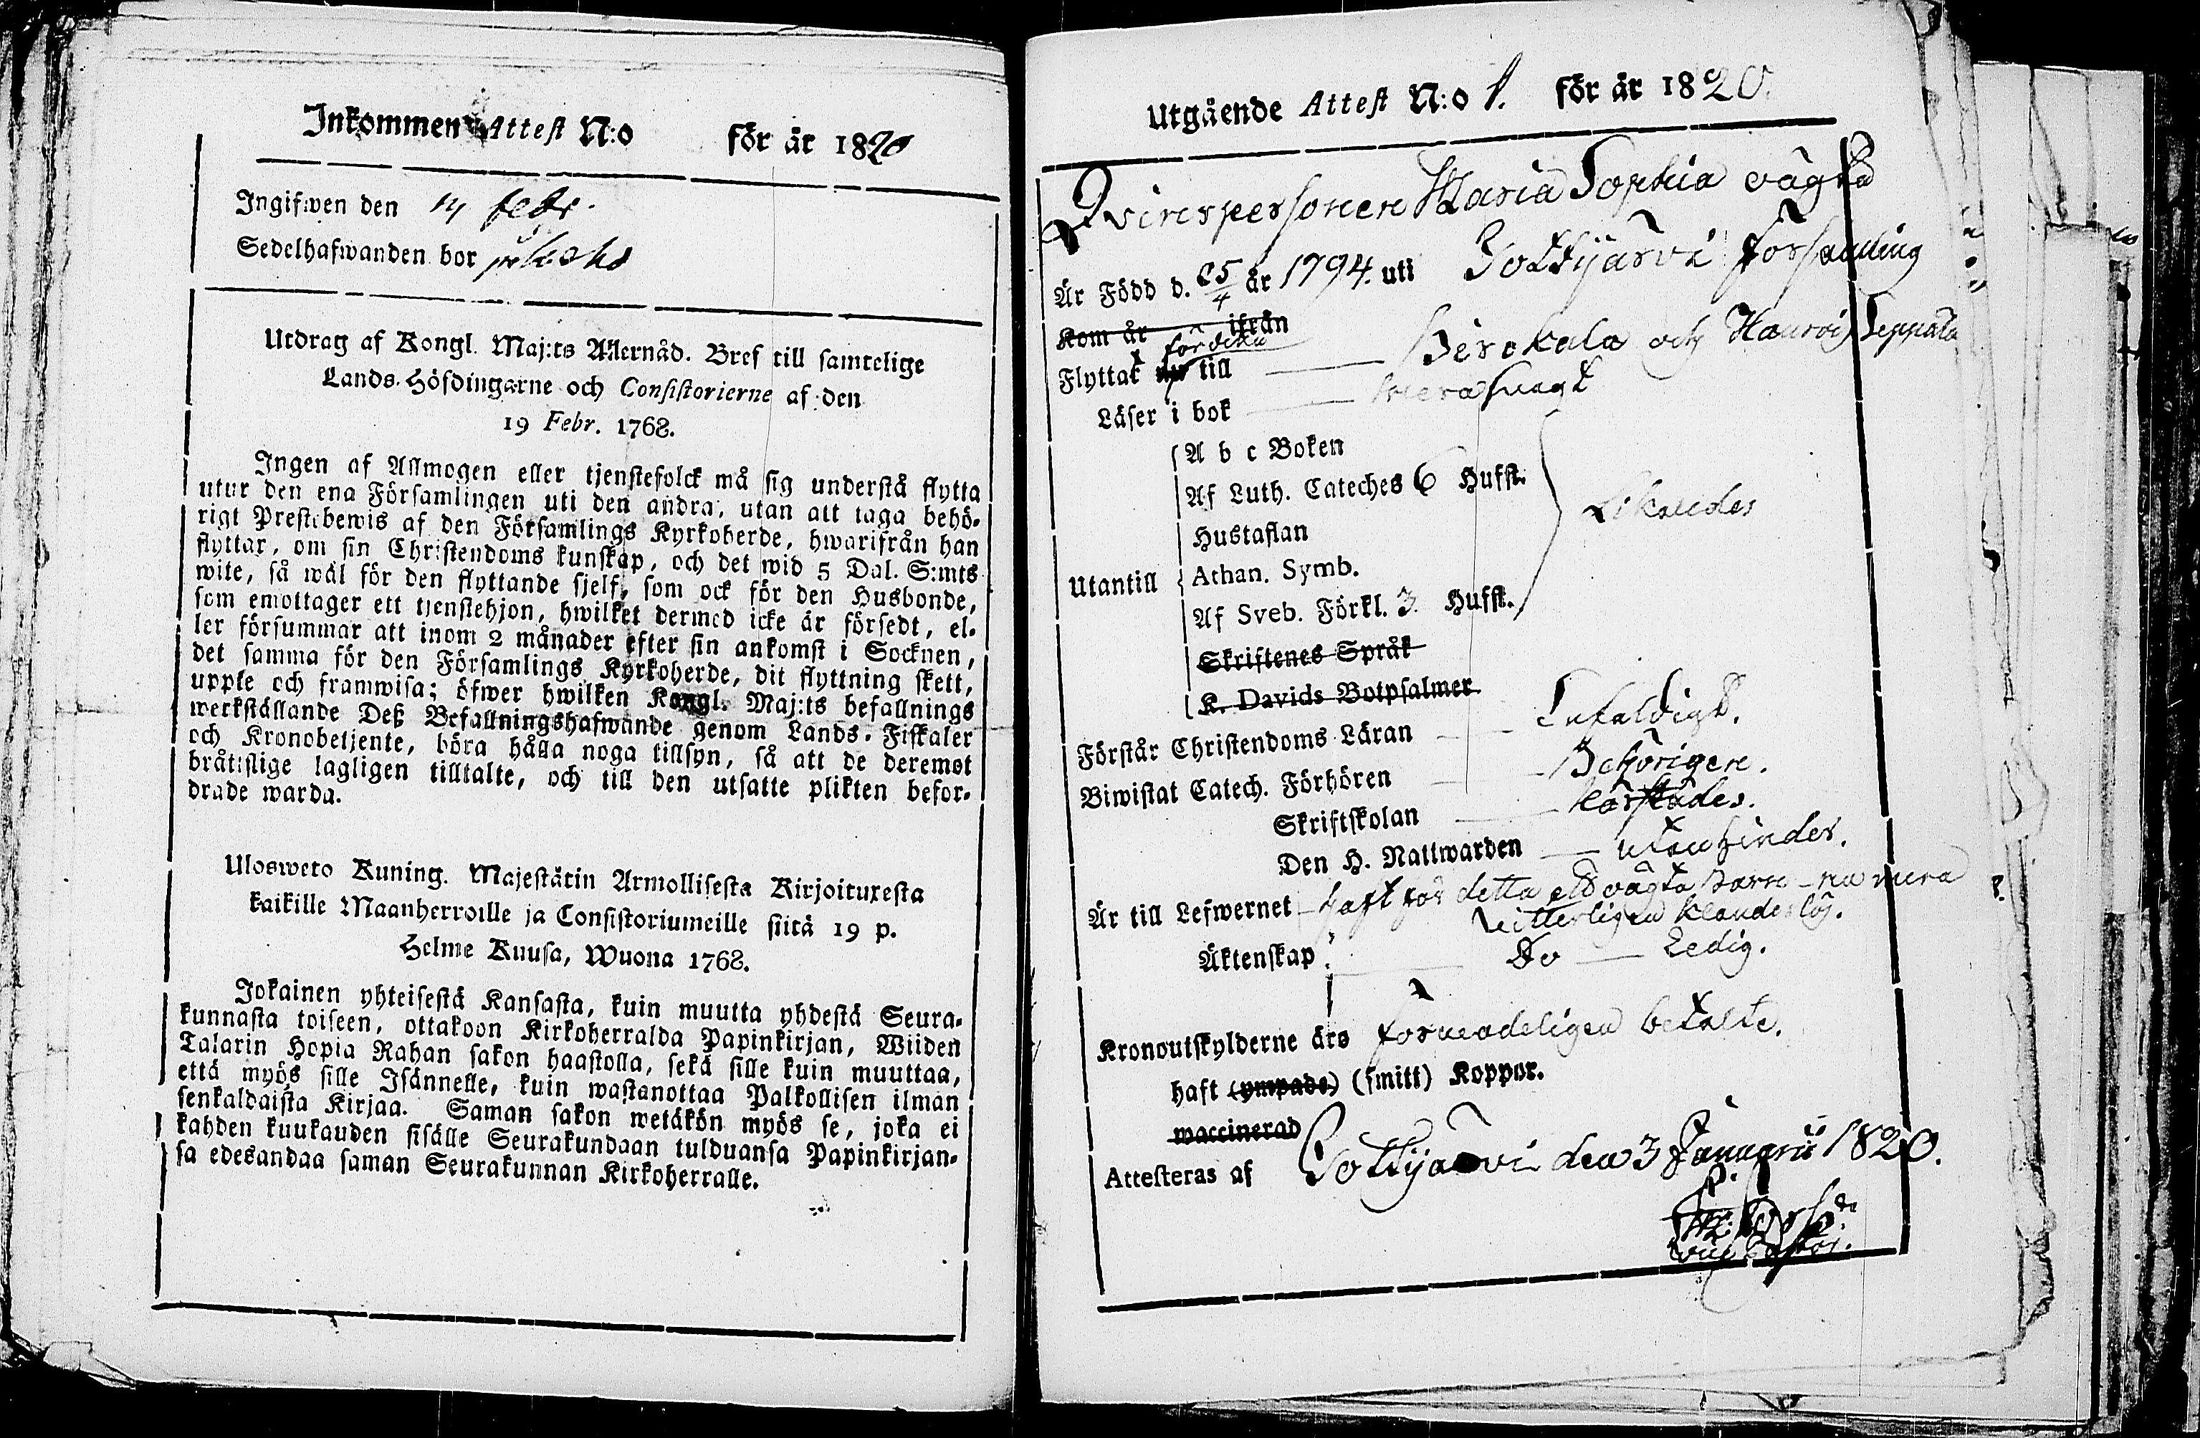 Inkommen Attest N:o för år 1820
Ingifwen den 14 febr.
Sedelhafwanden bor
Utdrag af Kongl. Maj:ts Allernåd. Bref till samtelige
Lands-Höfdingarne och Consistorierne af den
19 Febr. 1768.
Ingen af Allmogen eller tjenstefolck må sig understå flytta
utur den ena Församlingen uti den andra, utan att taga behö-
rigt Prestebewis af den Församlings Kyrkoherde, hwarifrån han
flyttar, om sin Christendoms kunskap, och det wid 5 Dal. S:mts
wite, så wäl för den flyttande sjelf, som ock för den Husbonde,
som emottager ett tjenstehjon, hwilket dermed icke är försedt, el-
ler försummar att inom 2 månader efter sin ankomst i Socknen,
det samma för den Församlings Kyrkoherde, dit flyttning skett,
upple och framwisa; öfwer hwilken Kongl. Maj:ts befallnings
werkställande Deß Befallningshafwande genom Lands-Fiskaler
och Kronobetjente, böra hålla noga tillsyn, så att de deremot
bråtislige lagligen tilltalte, och till den utsatte plikten befor-
drade warda.
Ulosweto Kuning. Majestätin Armollisesta Kirjoituxesta
kaikille Maanherroille ja Consistoriumeille siitä 19 p.
Helme Kuusa, Wuona 1768.
Jokainen yhteisestä Kansasta, kuin muutta yhdestä Seura-
kunnasta toiseen, ottakoon Kirkoherralda Papinkirjan, Wiiden
Talarin Hopia Rahan sakon haastolla, sekä sille kuin muuttaa,
että myös sille Isännelle, kuin wastanottaa Palkollisen ilman
senkaldaista Kirjaa. Saman sakon wetäkön myös se, joka ei
kahden kuukauden sisälle Seurakundaan tulduansa Papinkirjan-
sa edesandaa saman Seurakunnan Kirkoherralle.
Utgående Attest N:o 1. för år 1820.
Qvinspersonen Maria Sophia oägta
Är Född d. 25/4 år 1794. uti Pottijärvi församling
Kom år ifrån
Flyttat till Birckala och Leppälä
Läser i bok
A b c Boken
Af Luth. Cateches 6 Hufst.
Hustaflan
Utantill Athan. Symb.
Af Sveb. Förkl. 3. Hufst.
Skriftenes Språk
K. Davids Botpsalmer
Förstår Christendoms Läran Enfaldigt.
Biwistat Catech. Förhören Behörigen.
Skriftskolan
Den H. Nattwarden utan hinder.
Är till Lefwernet haft för detta oägta barn - nu mera
witterligen klanderlös.
Äktenskap Do Ledig.
Kronoutskylderne äro förmodeligen betalte.
haft (ympade) (smitt) Koppor.
waccinerad
Attesteras af Pottijärvi den 3 Januarii 1820.